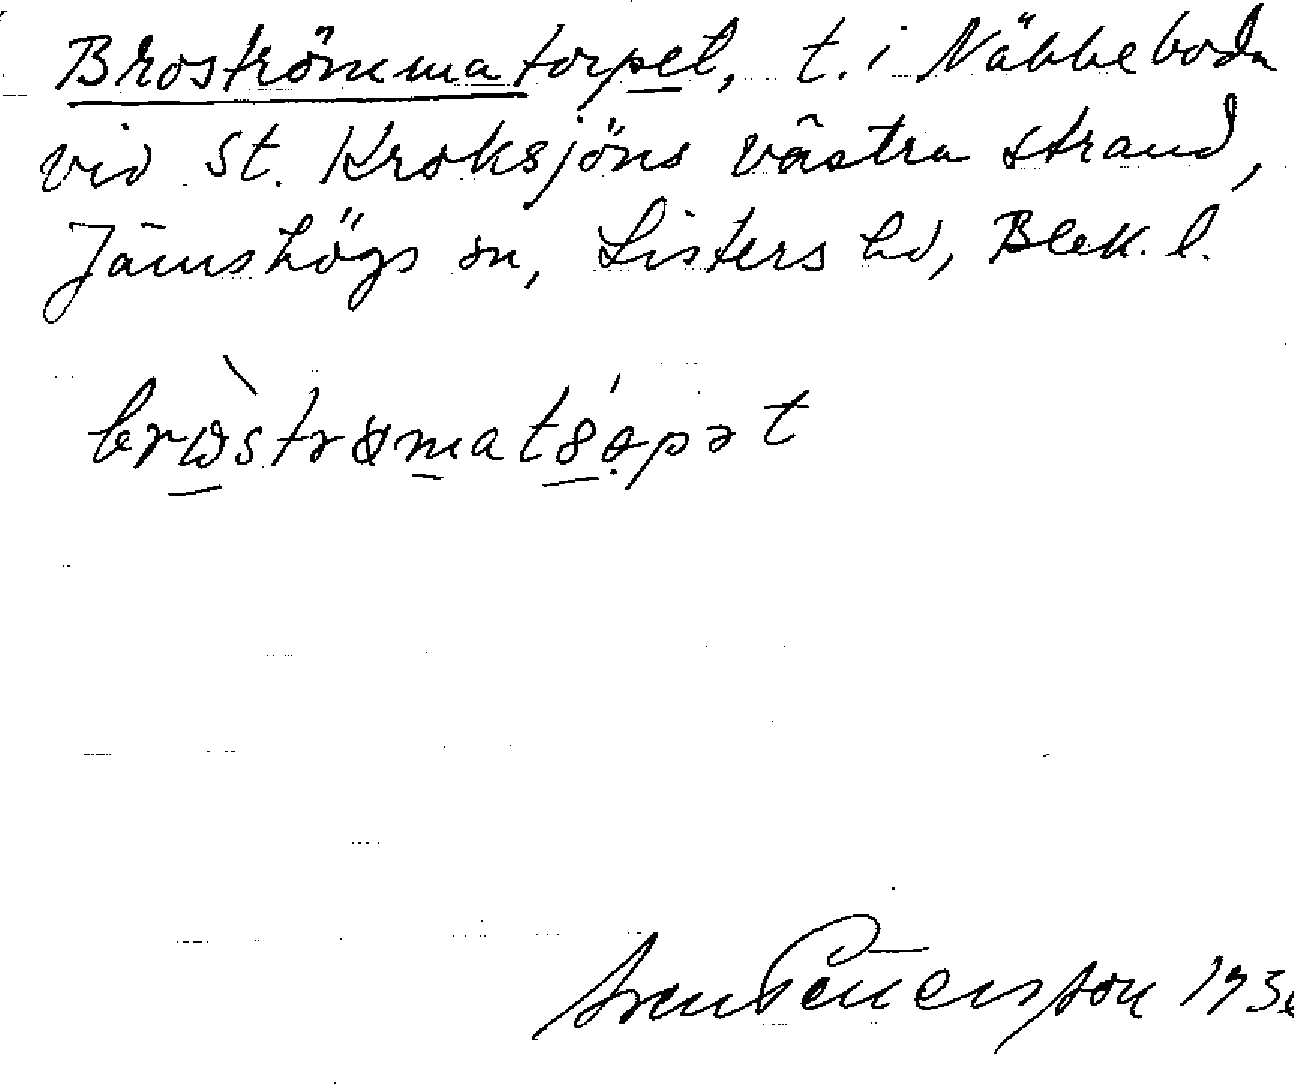 Broströmmatorpet, t. i Näbbeboda
vid St. Kroksjöns västra strand,
Jämshögs sn, Listers hd, Blek. l.
Sven Pettersson